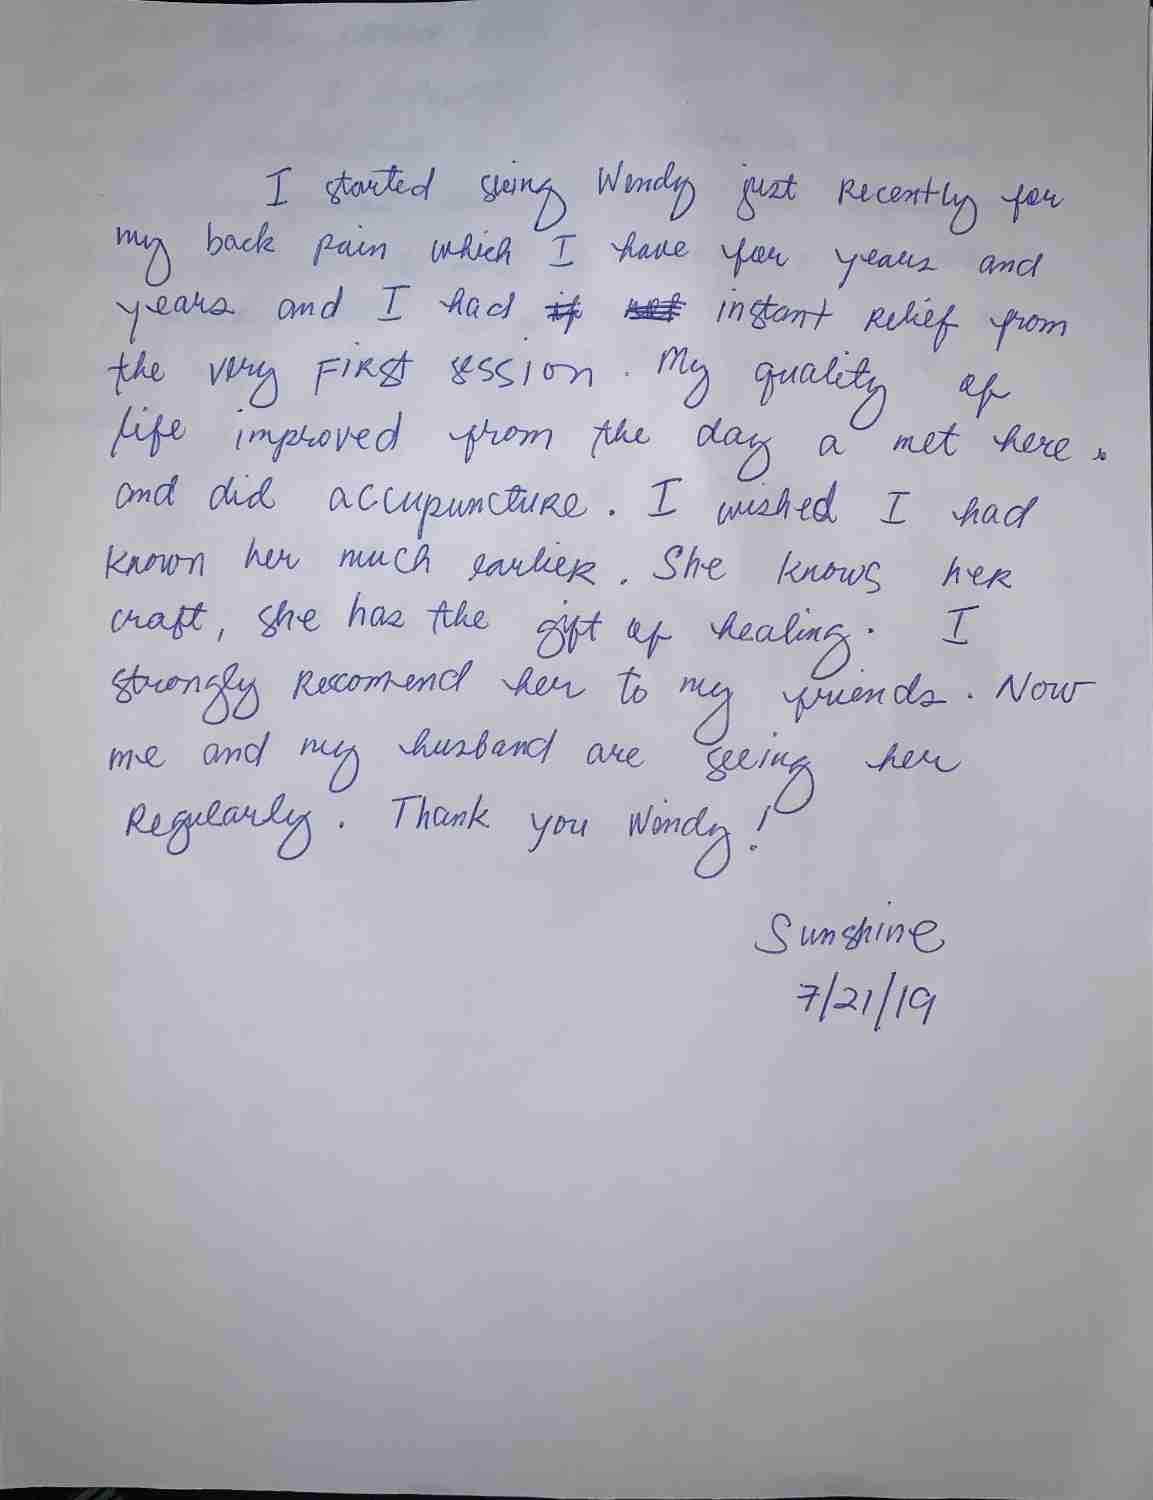 I started seeing Wendy just Recently for
my back pain which I have for years and
years and I had instant Relief from
the very FIRST session. My quality of
life improved from the day a met here.
and did accupuncture. I wished I had
known her much earlier. She knows her
craft, she has the gift of healing. I
strongly Recomend her to my friends. Now
me and my husband are seeing her
Regularly. Thank you Wendy!
Sunshine
7/21/19